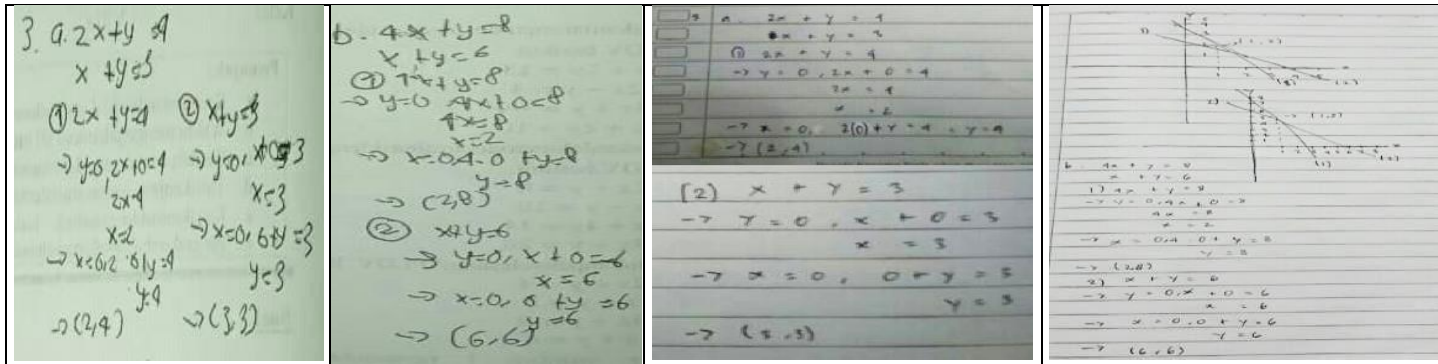 3. a. 2x+y=4
x+y=3
① 2x+y=4
→ y=0, 2x+0=4
2x=4
x=2
→ x=0, 2·0+y=4
y=4
→ (2,4)
② x+y=3
→ y=0, x+0=3
x=3
→ x=0, 0+y=3
y=3
→ (3,3)
b. 4x+y=8
x+y=6
① 4x+y=8
→ y=0 4x+0=8
4x=8
x=2
→ x=0, 4·0+y=8
y=8
→ (2,8)
② x+y=6
→ y=0, x+0=6
x=6
→ x=0, 0+y=6
y=6
→ (6,6)
3 a. 2x + y = 4
x + y = 3
① 2x + y = 4
→ y = 0, 2x + 0 = 4
2x = 4
x = 2
→ x = 0, 2(0) + y = 4 = y = 4
→ (2,4)
(2) x + y = 3
→ y = 0, x + 0 = 3
x = 3
→ x = 0, 0 + y = 3
y = 3
→ (3,3)
b. 4x + y = 8
x + y = 6
1) 4x + y = 8
→ y = 0, 4x + 0 = 8
4x = 8
x = 2
→ x = 0, 4·0 + y = 8
y = 8
→ (2,8)
2) x + y = 6
→ y = 0, x + 0 = 6
x = 6
→ x = 0, 0 + y = 6
y = 6
→ (6,6)